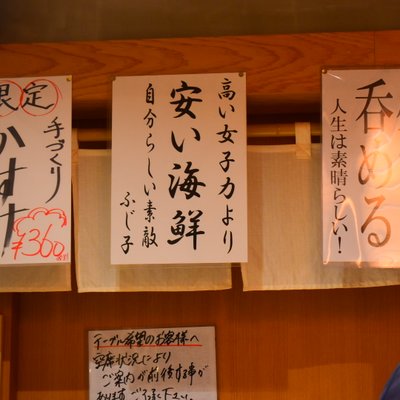 限定
手づくり
¥360
高い女子力より
安い海鮮
自分らしい素敵
ふじ子
呑める
人生は素晴らしい!
テーブル希望のお客様へ
空席状況により
ご案内が前後する事が
あります ご了承下さい。